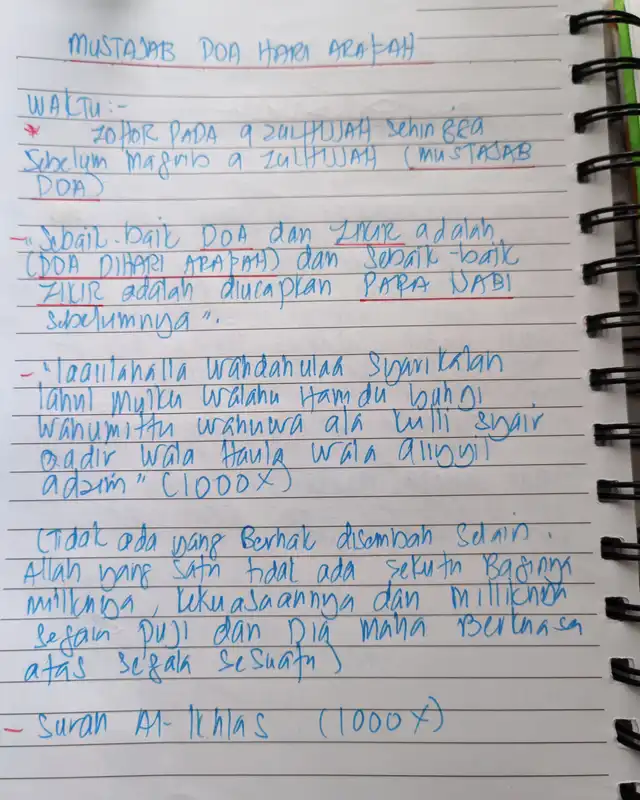 MUSTAJAB DOA HARI ARAFAH
WAKTU :-
* ZOHOR PADA 9 ZULHIJJAH sehingga
Sebelum Magrib 9 ZULHIJJAH (MUSTAJAB
DOA)
- "Sebaik-baik DOA dan ZIKIR adalah
(DOA DIHARI ARAFAH) dan Sebaik-baik
ZIKIR adalah diucapkan PARA NABI
sebelumnya".
- "laaiilahailla Wahdahulaa Syarikalah
lahul Mulku Walahu Hamdu
Wahumittu wahuwa ala kulli syair
qadir Wala Haula Wala aliyyil
adzim" (1000X)
(Tidak ada yang Berhak disembah Selain.
Allah yang Satu tidal ada sekutu Baginya
miliknya, kekuasaannya dan milliknya
segala puji dan Dia maha Berkuasa
atas segala sesuatu)
- Surah Al-Ikhlas (1000X)